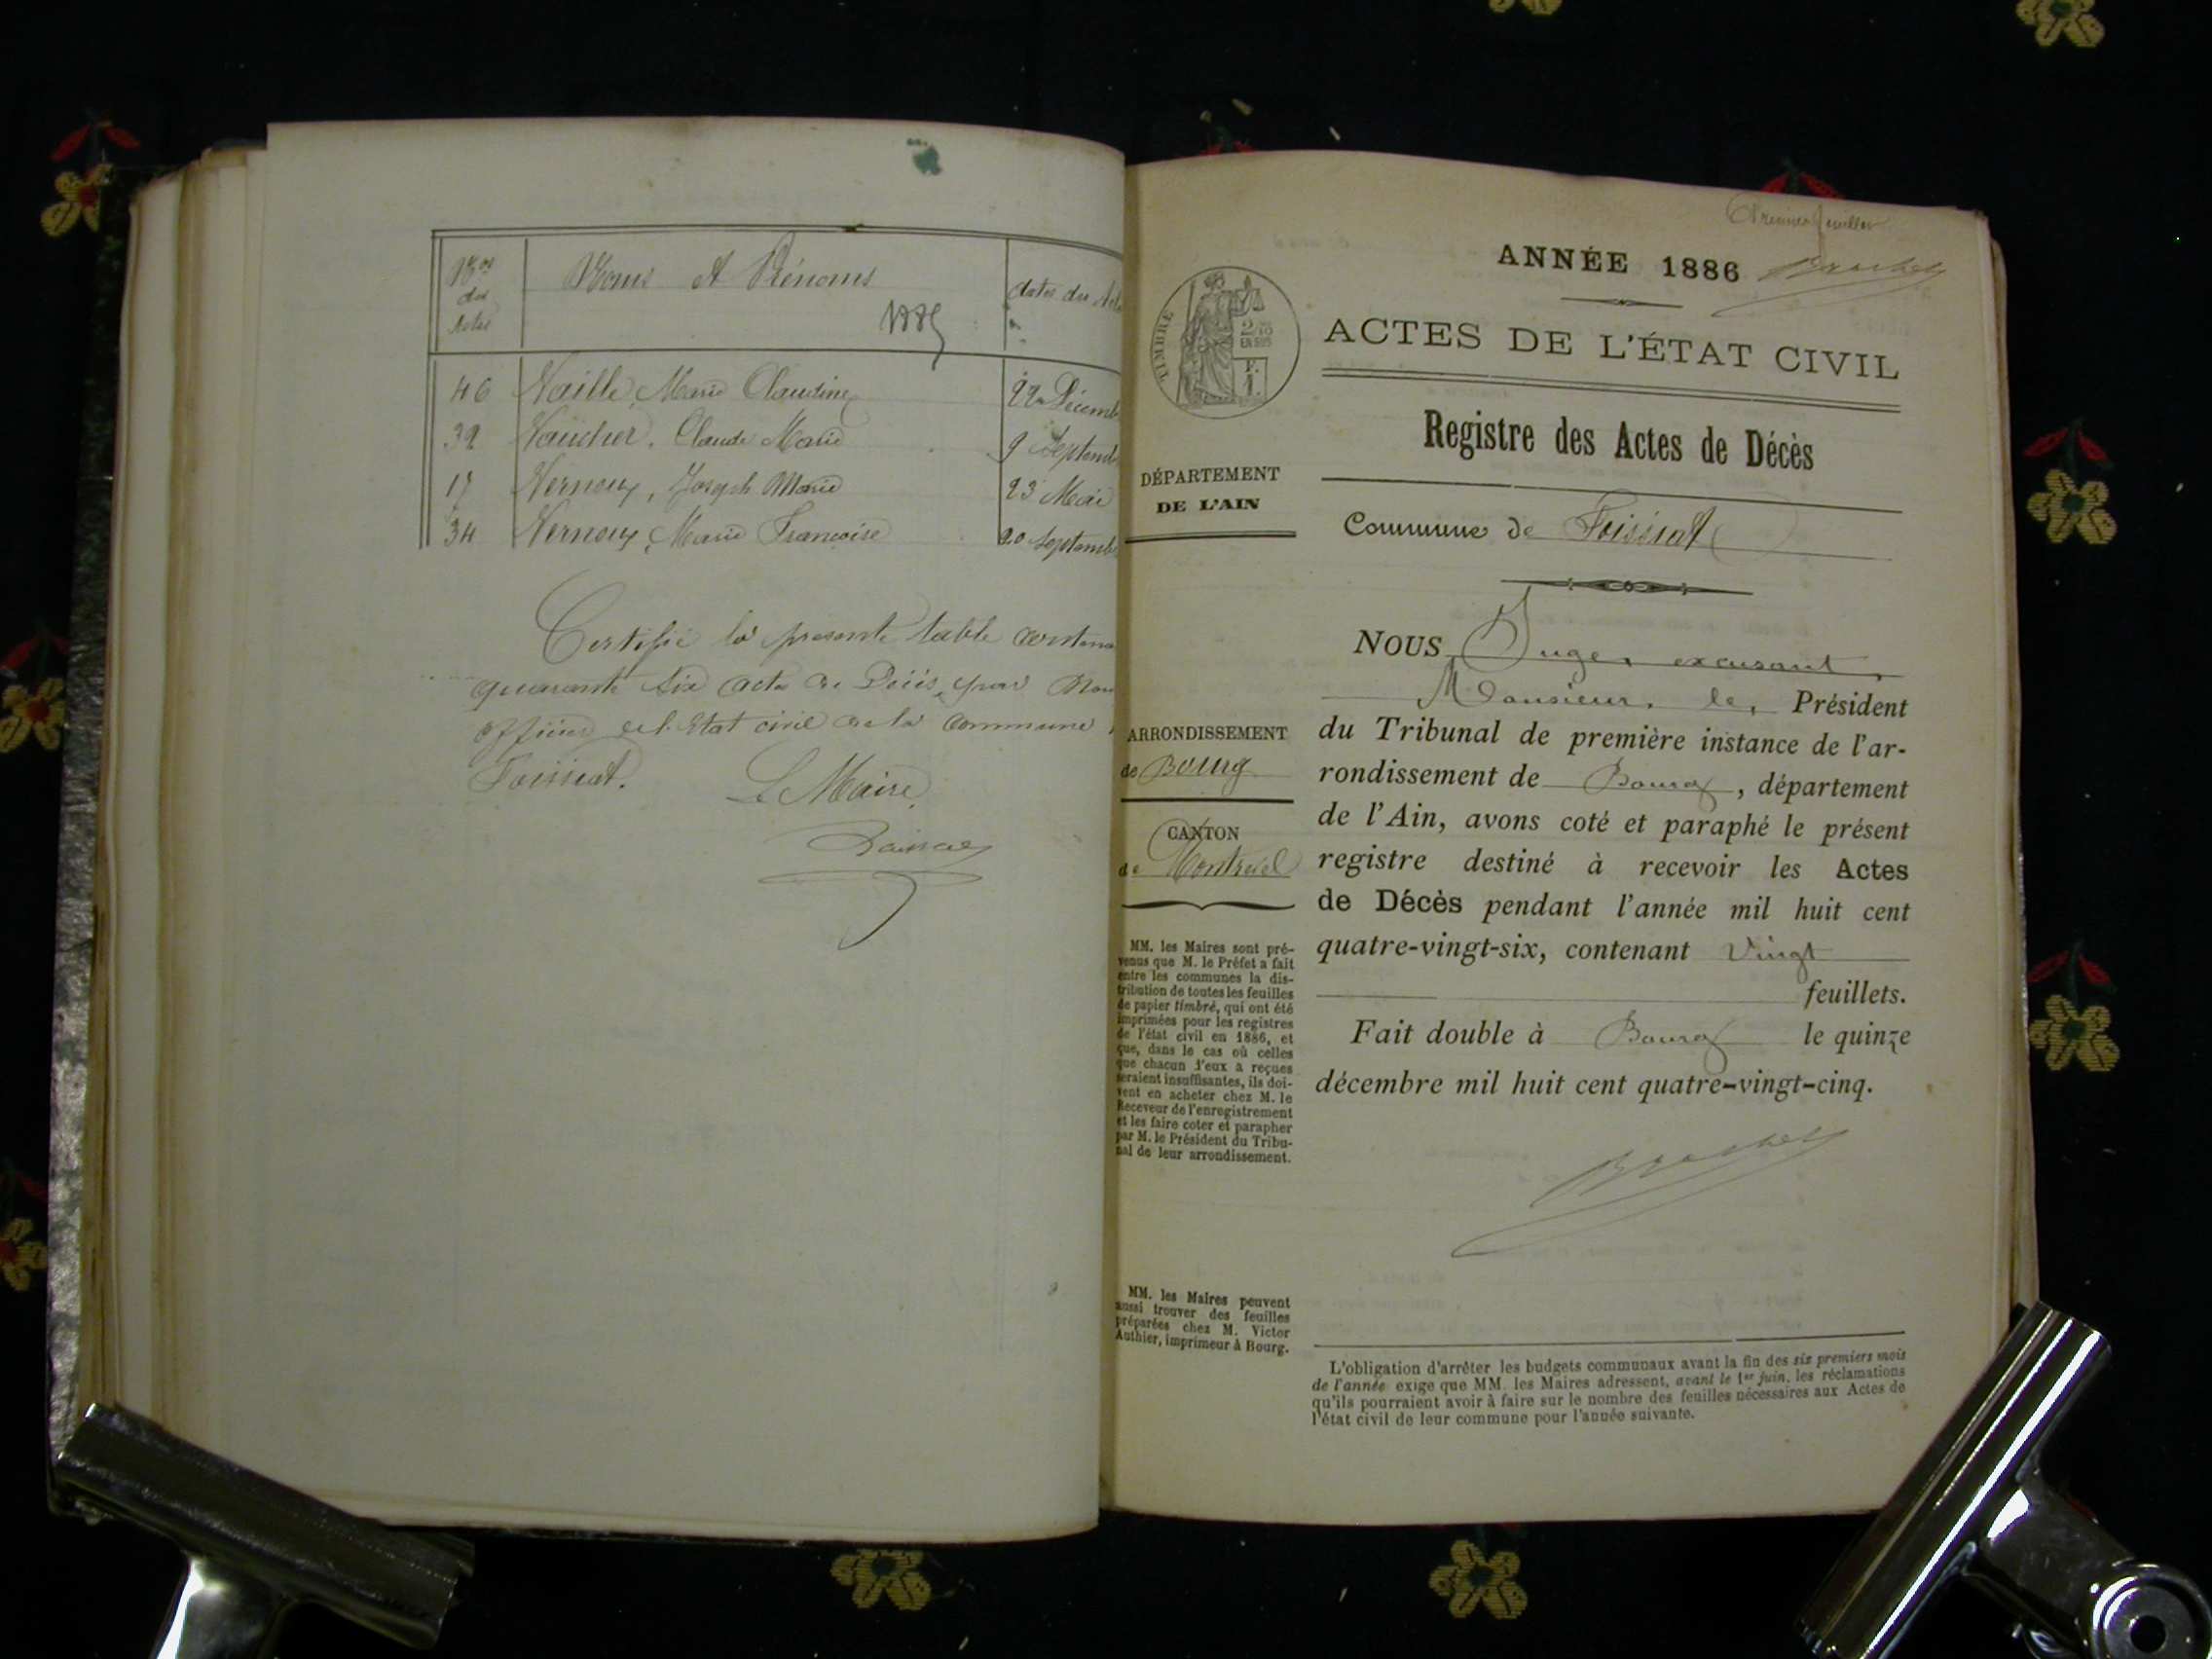 Nos des Actes
Noms et Prénoms
1885
dates des Act
46 Vaille, Marie Claudine 22 Décemb
39 Vaucher, Claude Marie 9 Septemb
17 Vernoux, Joseph Marie 23 Mai
34 Vernoux, Marie Françoise 20 Septemb
Certifié la présente table contena
quarante six actes de Décès, par Nou
officier de l'Etat civil de la commune
Foissiat.
Le Maire,
Premier feuillet
ANNÉE 1886
TIMBRE
ACTES DE L'ÉTAT CIVIL
Registre des Actes de Décès
DÉPARTEMENT
DE L'AIN
Commune de Foissiat
NOUS Juge, excusant,
Monsieur, le, Président
du Tribunal de première instance de l'ar-
rondissement de Bourg, département
de l'Ain, avons coté et paraphé le présent
registre destiné à recevoir les Actes
de Décès pendant l'année mil huit cent
quatre-vingt-six, contenant Vingt
feuillets.
Fait double à Bourg le quinze
décembre mil huit cent quatre-vingt-cinq.
ARRONDISSEMENT
de Bourg
CANTON
de Montrevel
MM. les Maires sont pré-
venus que M. le Préfet a fait
entre les communes la dis-
tribution de toutes les feuilles
de papier timbré, qui ont été
imprimées pour les registres
de l'état civil en 1886, et
que, dans le cas où celles
que chacun d'eux a reçues
seraient insuffisantes, ils doi-
vent en acheter chez M. le
Receveur de l'enregistrement
et les faire coter et parapher
par M. le Président du Tribu-
nal de leur arrondissement.
MM. les Maires peuvent
aussi trouver des feuilles
préparées chez M. Victor
Authier, imprimeur à Bourg.
L'obligation d'arrêter les budgets communaux avant la fin des six premiers mois
de l'année exige que MM. les Maires adressent, avant le 1er juin, les réclamations
qu'ils pourraient avoir à faire sur le nombre des feuilles nécessaires aux Actes de
l'état civil de leur commune pour l'année suivante.